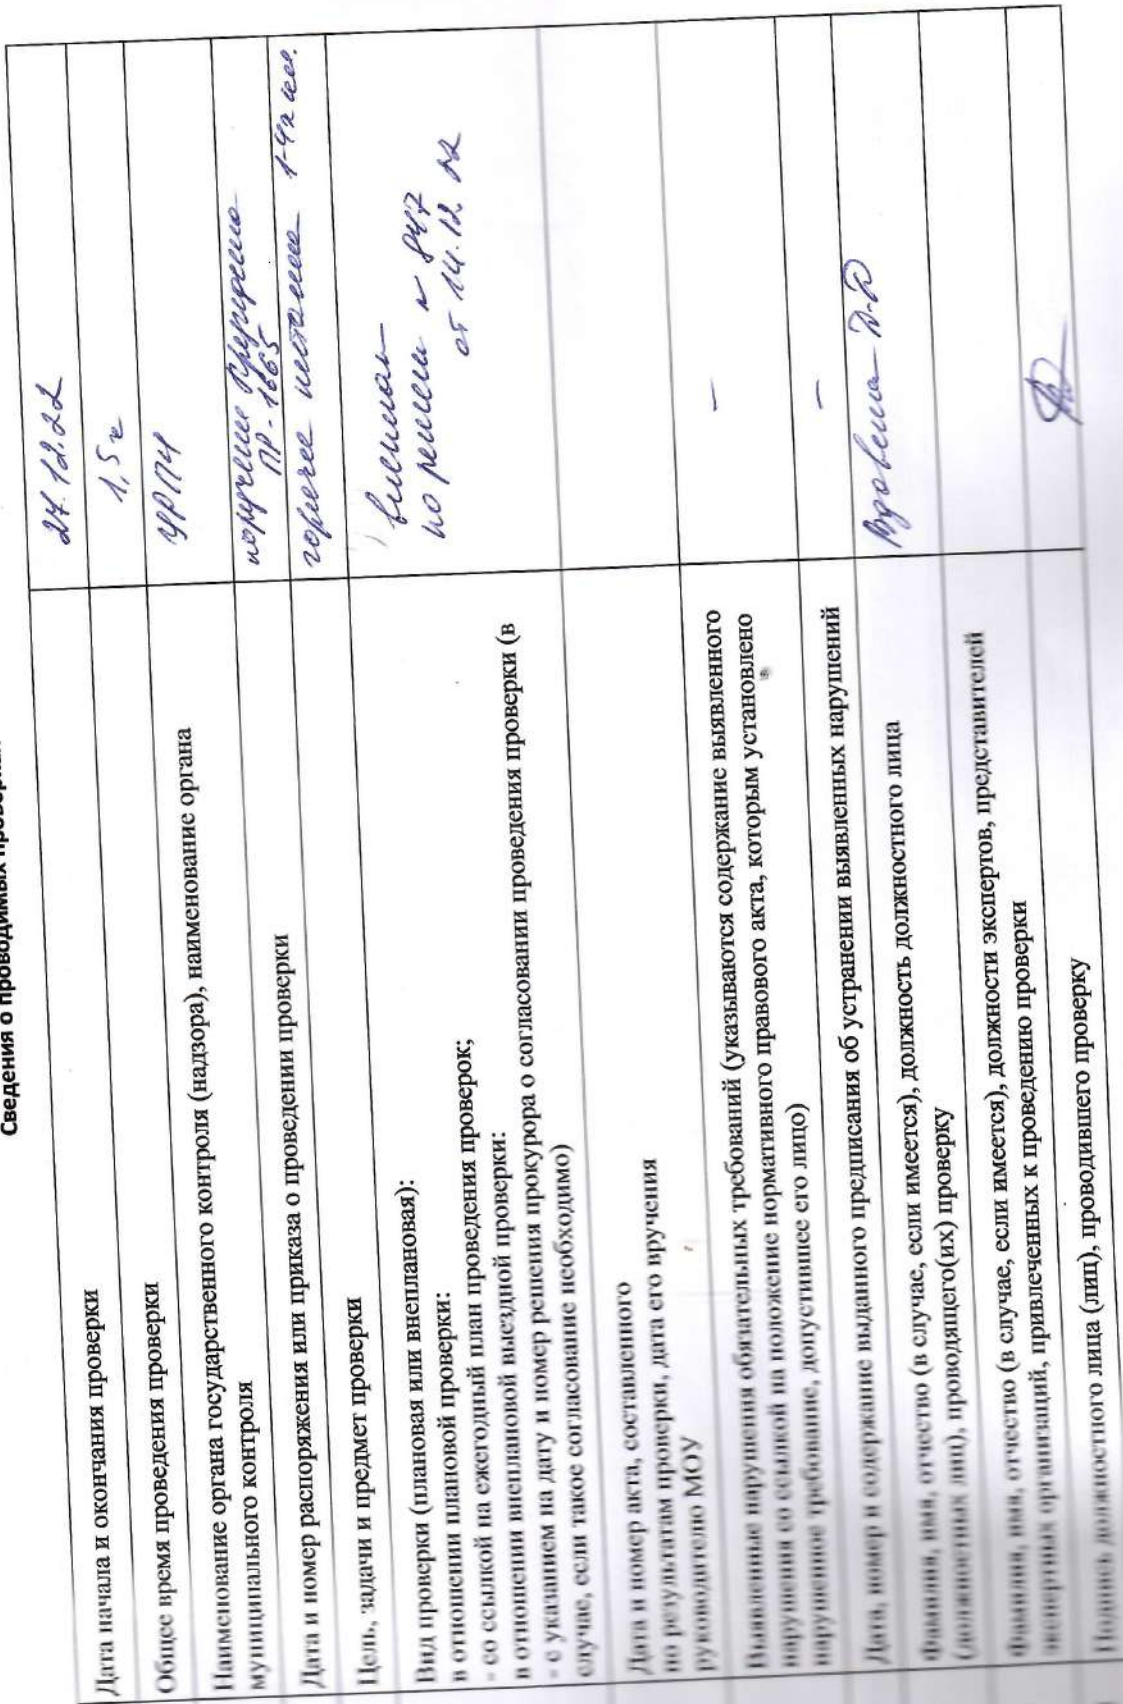 Сведения о проводимых проверках
Дата начала и окончания проверки
27.12.22
Общее время проведения проверки
1,5 ч
Наименование органа государственного контроля (надзора), наименование органа
муниципального контроля
УРПЧ
Дата и номер распоряжения или приказа о проведении проверки
поручение Президента
ПР-1665
Цель, задачи и предмет проверки
горячее питание 1-4х кл.
Вид проверки (плановая или внеплановая):
в отношении плановой проверки:
- со ссылкой на ежегодный план проведения проверок;
в отношении внеплановой выездной проверки:
- с указанием на дату и номер решения прокурора о согласовании проведения проверки (в
случае, если такое согласование необходимо)
по решен N 847
от 14.12.22
Дата и номер акта, составленного
по результатам проверки, дата его вручения
руководителю МОУ
Выявленные нарушения обязательных требований (указываются содержание выявленного
нарушения со ссылкой на положение нормативного правового акта, которым установлено
нарушенное требование, допустившее его лицо)
–
Дата, номер и содержание выданного предписания об устранении выявленных нарушений
–
Фамилия, имя, отчество (в случае, если имеется), должность должностного лица
(должностных лиц), проводящего(их) проверку
Вдовина
Фамилия, имя, отчество (в случае, если имеется), должности экспертов, представителей
экспертных организаций, привлеченных к проведению проверки
Подпись должностного лица (лиц), проводившего проверку